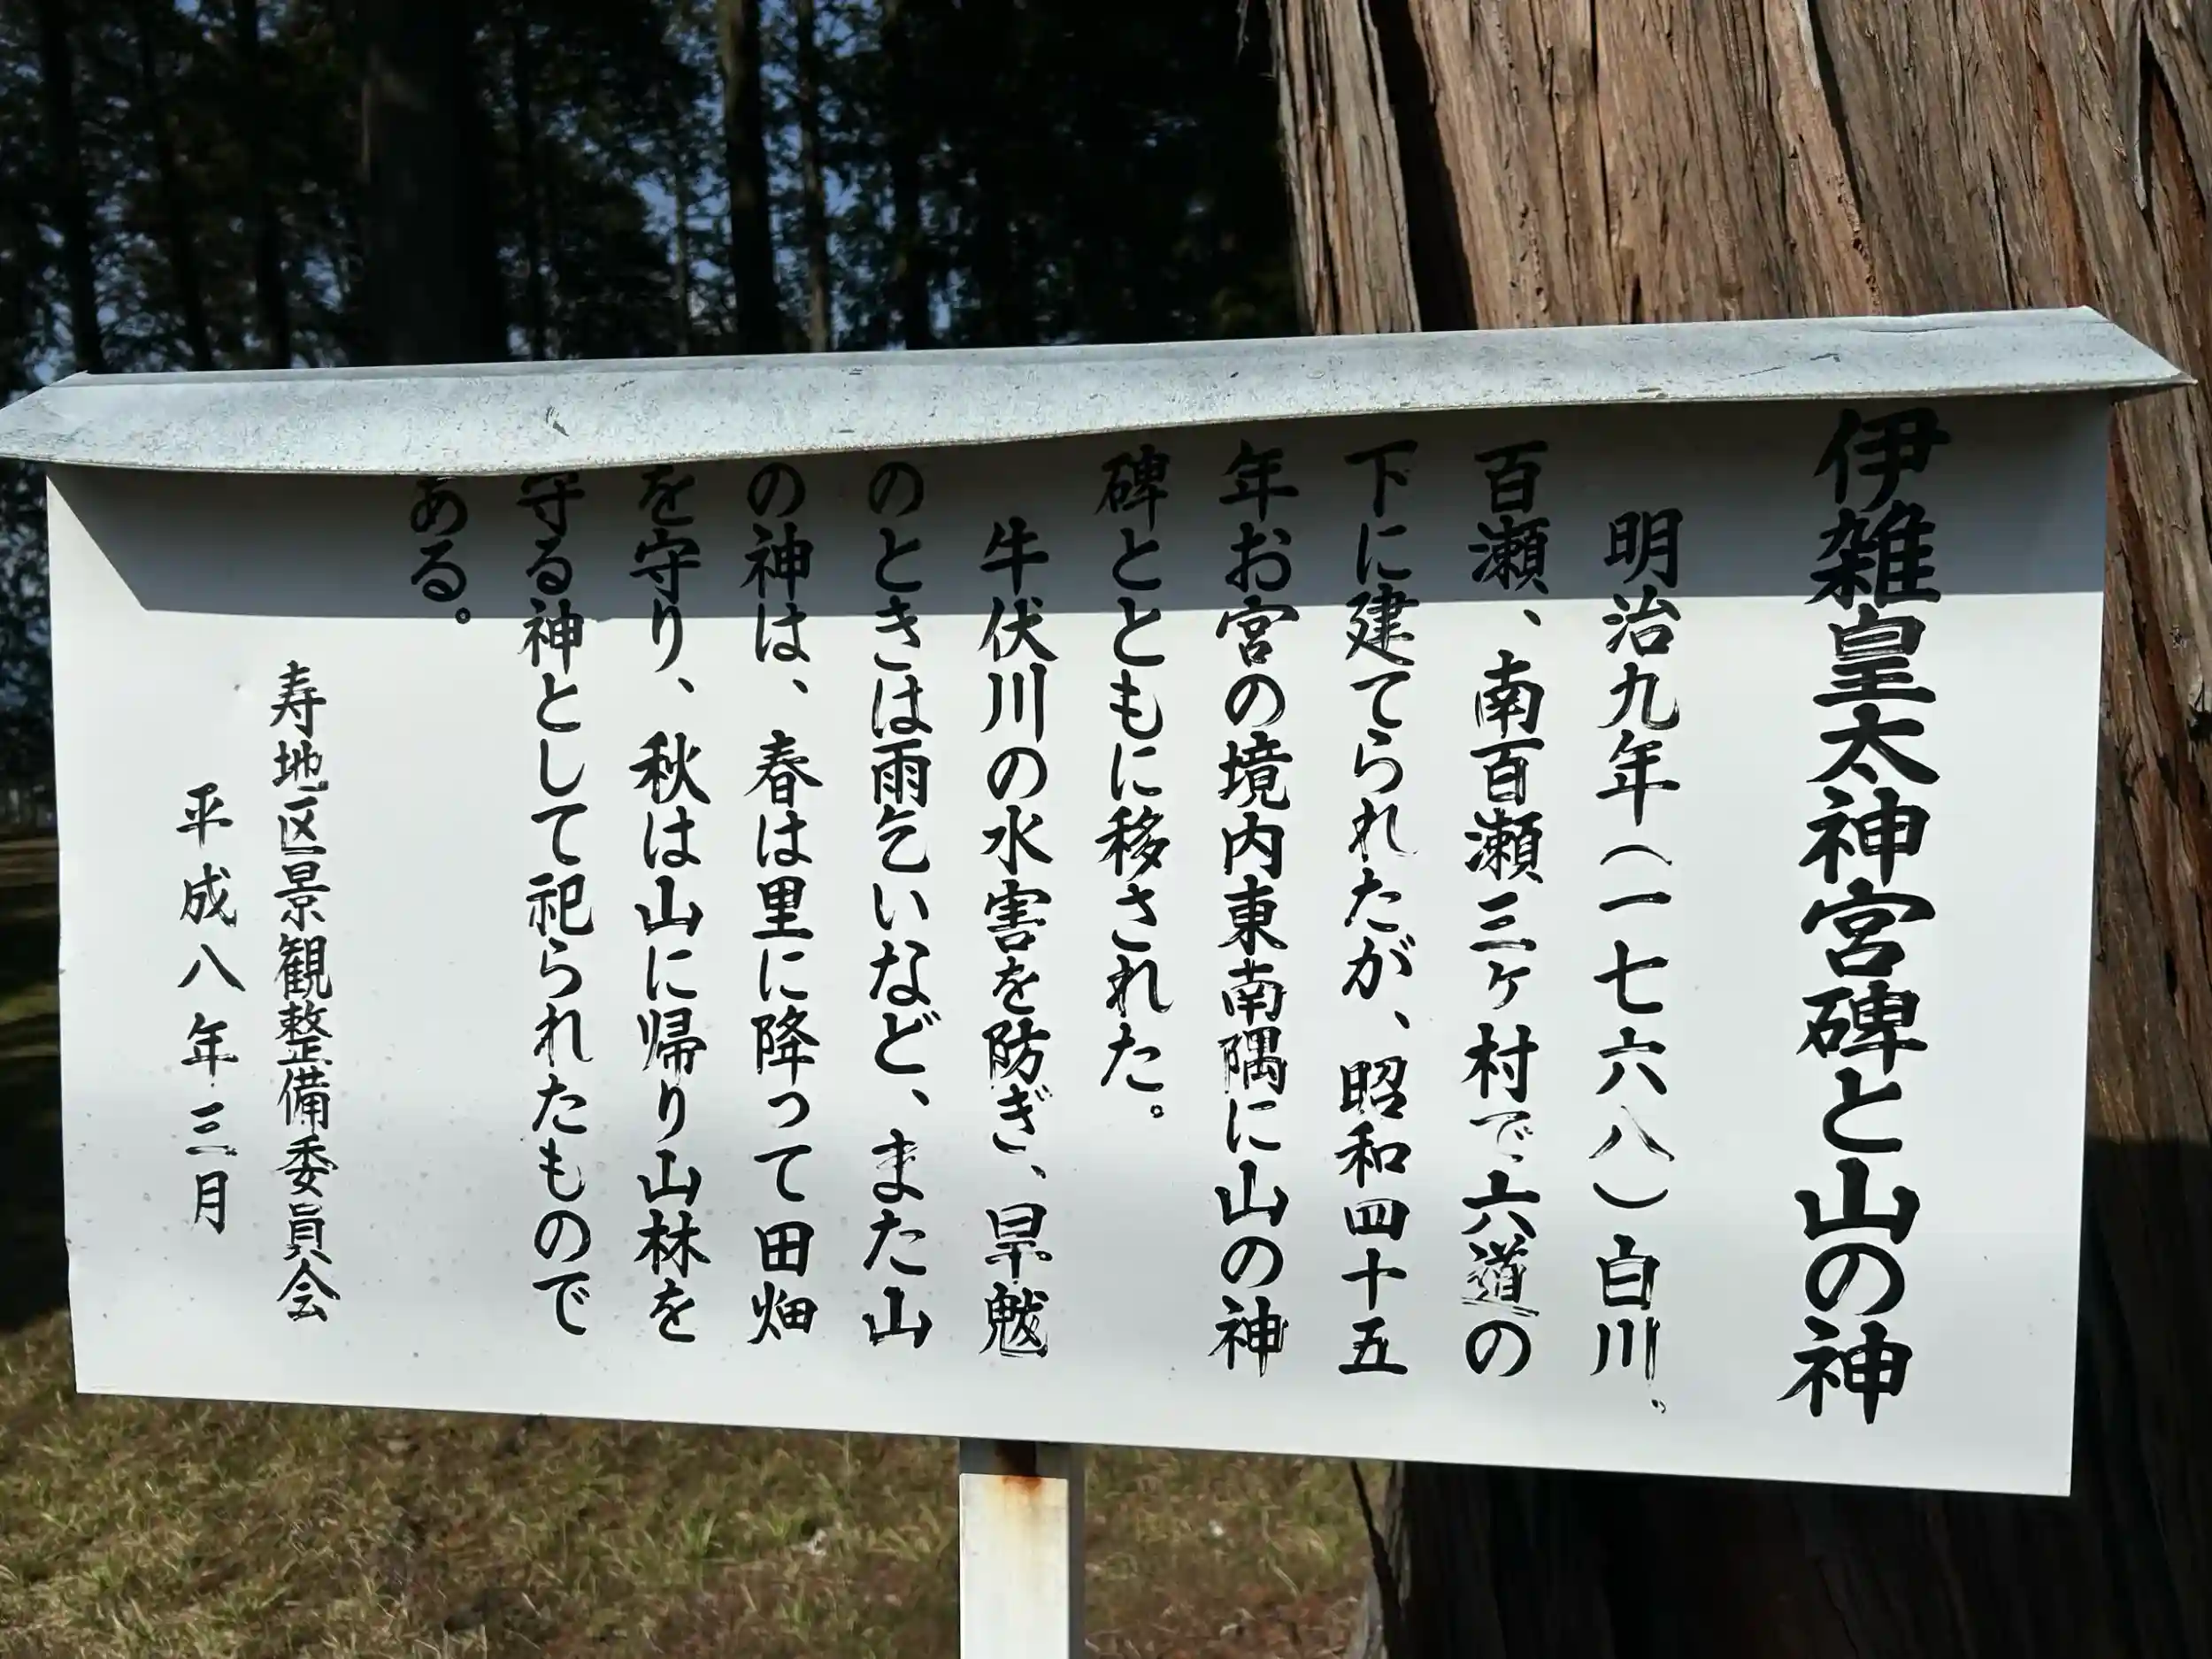 伊雑皇太神宮碑と山の神
明治九年(一七六八)白川、
百瀬、南百瀬三ヶ村で六道の
下に建てられたが、昭和四十五
年お宮の境内東南隅に山の神
碑とともに移された。
牛伏川の水害を防ぎ、旱魃
のときは雨乞いなど、また山
の神は、春は里に降って田畑
を守り、秋は山に帰り山林を
守る神として祀られたもので
ある。
寿地区景観整備委員会
平成八年三月